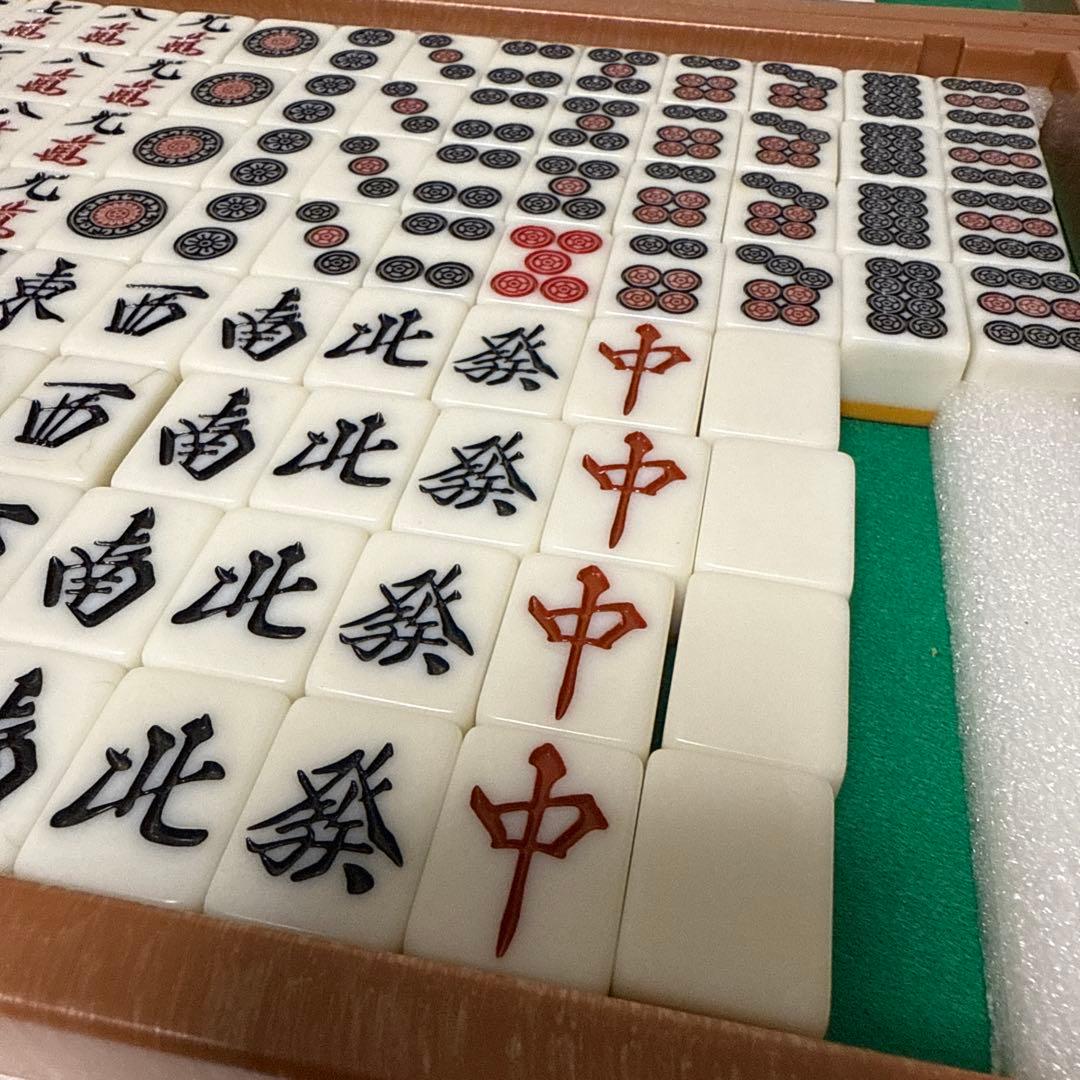 七 八 九
萬 萬 萬
八 九
萬 萬
九
萬
九
東 西 南 北 發 中
西 南 北 發 中
南 北 發 中
南 北 發 中